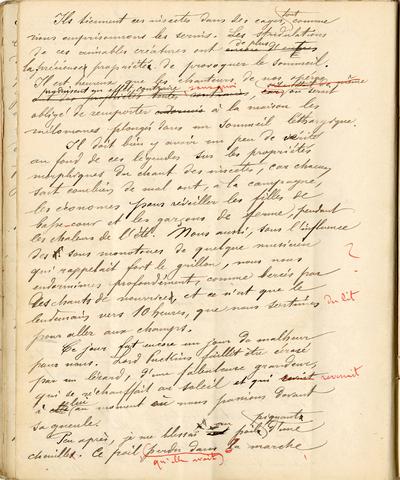 Ils tiennent ces insectes dans des cages, tout comme
nous emprisonnons les serins. Les stridulations
de ces aimables créatures ont de plus
la précieuse propriété de provoquer le sommeil.
Il est heureux que les chanteurs de nos opéra
produisent un effet contraire sans quoi on serait
obligé de remporter à la maison les
mélomanes plongés dans un sommeil léthargique.
Il doit bien y avoir un peu de vérité
au fond de ces légendes sur les propriétés
morphiques du chant des insectes, car chacun
sait combien de mal ont, à la campagne,
les économes pour réveiller les filles de
basse-cour et les garçons de ferme, pendant
les chaleurs de l'été. Nous aussi, sous l'influence
des sons monotones de quelque musicien
qui rappelait fort le grillon, nous nous ?
endormîmes profondément, comme bercés par
les chants de nourrices, et ce n'est que le
lendemain vers 10 heures, que nous sortîmes du lit
pour aller aux champs.
Ce jour fut encore un jour de malheur
pour nous. Lord Puckins faillit être écrasé
par un lézard, d'une fabuleuse grandeur,
qui se réchauffait au soleil et qui revenait
à lui au moment où nous passions devant
sa gueule.
Peu après, je me blessai au poil piquant d'une
chenille. Ce poil perdu dans la marche
qu'elle avait !